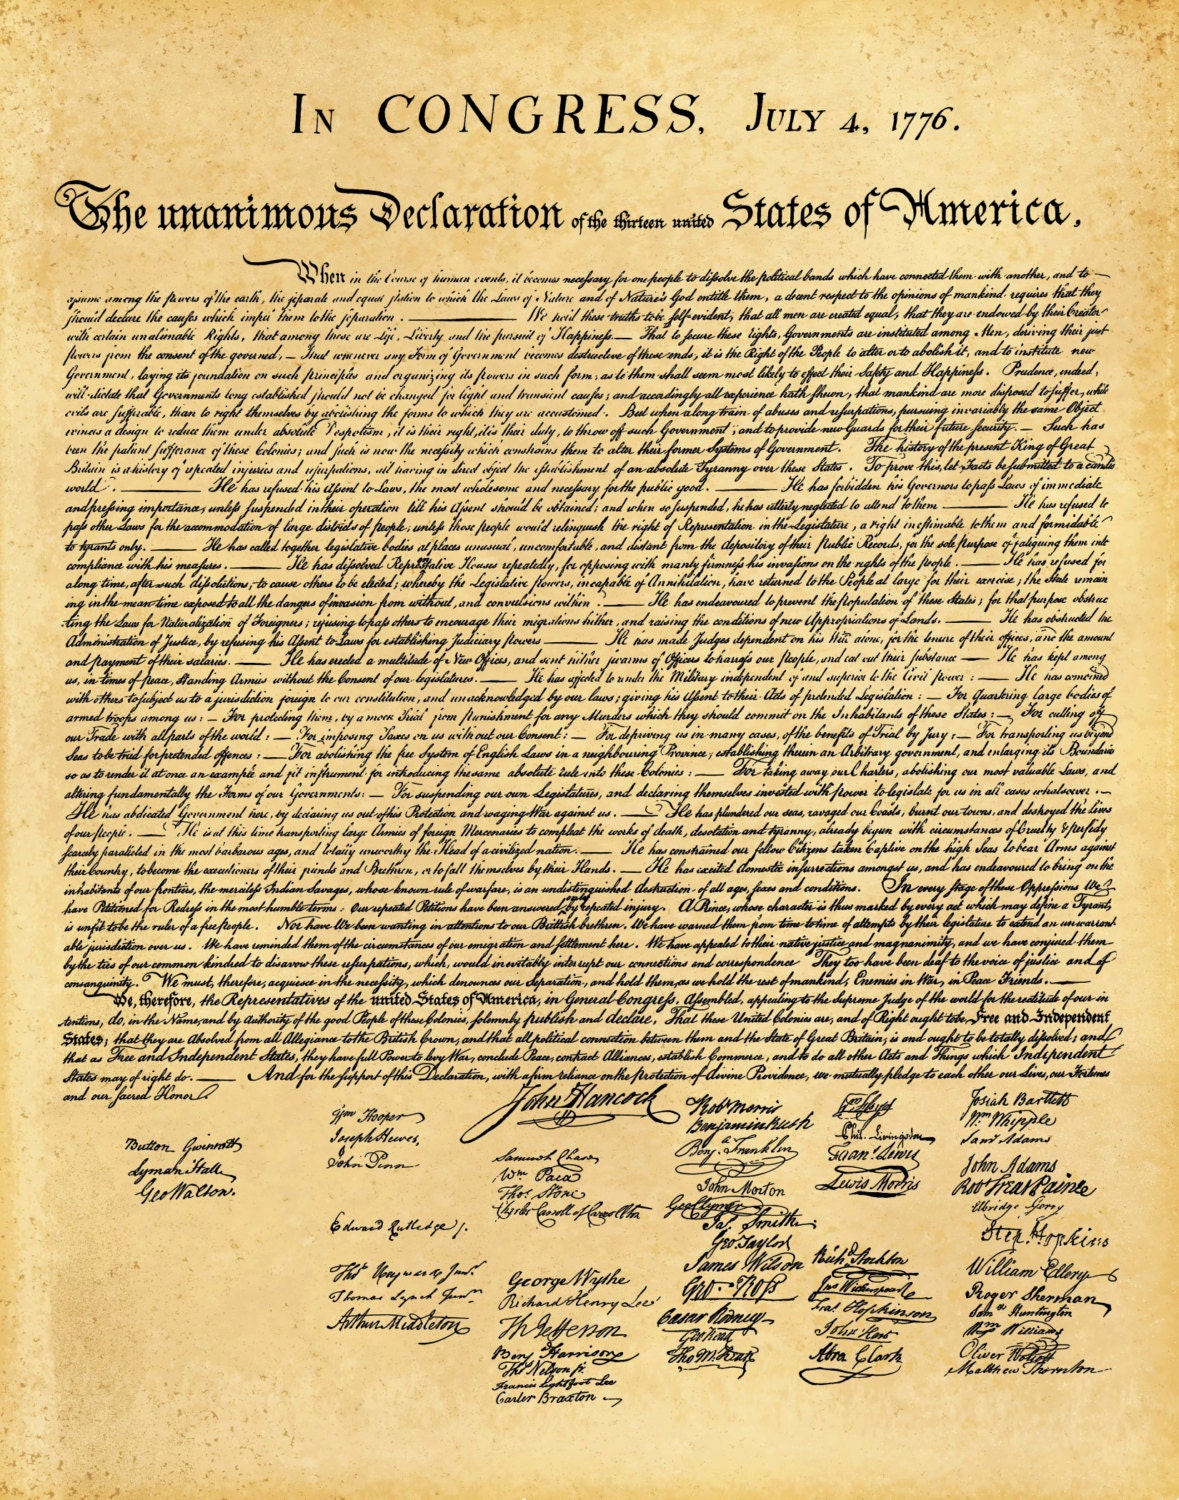 IN CONGRESS, JULY 4, 1776.
The unanimous Declaration of the thirteen united States of America,
When in the Course of human events, it becomes necessary for one people to dissolve the political bands which have connected them with another, and to
assume among the powers of the earth, the separate and equal station to which the Laws of Nature and of Nature's God entitle them, a decent respect to the opinions of mankind requires that they
should declare the causes which impel them to the separation. — We hold these truths to be self-evident, that all men are created equal, that they are endowed by their Creator
with certain unalienable Rights, that among these are Life, Liberty and the pursuit of Happiness. — That to secure these rights, Governments are instituted among Men, deriving their just
powers from the consent of the governed, — That whenever any Form of Government becomes destructive of these ends, it is the Right of the People to alter or to abolish it, and to institute new
Government, laying its foundation on such principles and organizing its powers in such form, as to them shall seem most likely to effect their Safety and Happiness. Prudence, indeed,
will dictate that Governments long established should not be changed for light and transient causes; and accordingly all experience hath shewn, that mankind are more disposed to suffer, while
evils are sufferable, than to right themselves by abolishing the forms to which they are accustomed. But when a long train of abuses and usurpations, pursuing invariably the same Object
evinces a design to reduce them under absolute Despotism, it is their right, it is their duty, to throw off such Government, and to provide new Guards for their future security. — Such has
been the patient sufferance of these Colonies; and such is now the necessity which constrains them to alter their former Systems of Government. The history of the present King of Great
Britain is a history of repeated injuries and usurpations, all having in direct object the establishment of an absolute Tyranny over these States. To prove this, let Facts be submitted to a candid
world. — He has refused his Assent to Laws, the most wholesome and necessary for the public good. — He has forbidden his Governors to pass Laws of immediate
and pressing importance, unless suspended in their operation till his Assent should be obtained; and when so suspended, he has utterly neglected to attend to them — He has refused to
pass other Laws for the accommodation of large districts of people, unless those people would relinquish the right of Representation in the Legislature, a right inestimable to them and formidable
to tyrants only. — He has called together legislative bodies at places unusual, uncomfortable, and distant from the depository of their Public Records, for the sole purpose of fatiguing them into
compliance with his measures. — He has dissolved Representative Houses repeatedly, for opposing with manly firmness his invasions on the rights of the people. — He has refused for
a long time, after such dissolutions, to cause others to be elected; whereby the Legislative powers, incapable of Annihilation, have returned to the People at large for their exercise; the State remain
ing in the mean time exposed to all the dangers of invasion from without, and convulsions within. — He has endeavoured to prevent the population of these States; for that purpose obstruc
ting the Laws for Naturalization of Foreigners; refusing to pass others to encourage their migrations hither, and raising the conditions of new Appropriations of Lands. — He has obstructed the
Administration of Justice, by refusing his Assent to Laws for establishing Judiciary powers — He has made Judges dependent on his Will alone, for the tenure of their offices, and the amount
and payment of their salaries. — He has erected a multitude of New Offices, and sent hither swarms of Officers to harrass our people, and eat out their substance — He has kept among
us, in times of peace, Standing Armies without the Consent of our legislatures. — He has affected to render the Military independent of and superior to the Civil power: — He has combined
with others to subject us to a jurisdiction foreign to our constitution, and unacknowledged by our laws; giving his Assent to their Acts of pretended Legislation: — For Quartering large bodies of
armed troops among us: — For protecting them, by a mock Trial from punishment for any Murders which they should commit on the Inhabitants of these States: — For cutting off
our Trade with all parts of the world: — For imposing Taxes on us without our Consent: — For depriving us in many cases, of the benefits of Trial by Jury: — For transporting us beyond
Seas to be tried for pretended offences: — For abolishing the free System of English Laws in a neighbouring Province, establishing therein an Arbitrary government, and enlarging its Boundaries
so as to render it at once an example and fit instrument for introducing the same absolute rule into these Colonies: — For taking away our Charters, abolishing our most valuable Laws, and
altering fundamentally the Forms of our Governments: — For suspending our own Legislatures, and declaring themselves invested with power to legislate for us in all cases whatsoever. —
He has abdicated Government here, by declaring us out of his Protection and waging War against us. — He has plundered our seas, ravaged our Coasts, burnt our towns, and destroyed the lives
of our people. — He is at this time transporting large Armies of foreign Mercenaries to compleat the works of death, desolation and tyranny, already begun with circumstances of Cruelty & perfidy
scarcely paralleled in the most barbarous ages, and totally unworthy the Head of a civilized nation. — He has constrained our fellow Citizens taken Captive on the high Seas to bear Arms against
their Country, to become the executioners of their friends and Brethren, or to fall themselves by their Hands. — He has excited domestic insurrections amongst us, and has endeavoured to bring on the
inhabitants of our frontiers, the merciless Indian Savages, whose known rule of warfare, is an undistinguished destruction of all ages, sexes and conditions. In every stage of these Oppressions We
have Petitioned for Redress in the most humble terms: Our repeated Petitions have been answered only by repeated injury. A Prince, whose character is thus marked by every act which may define a Tyrant,
is unfit to be the ruler of a free people. Nor have We been wanting in attentions to our Brittish brethren. We have warned them from time to time of attempts by their legislature to extend an unwarrant
able jurisdiction over us. We have reminded them of the circumstances of our emigration and settlement here. We have appealed to their native justice and magnanimity, and we have conjured them
by the ties of our common kindred to disavow these usurpations, which, would inevitably interrupt our connections and correspondence They too have been deaf to the voice of justice and of
consanguinity. We must, therefore, acquiesce in the necessity, which denounces our Separation, and hold them, as we hold the rest of mankind, Enemies in War, in Peace Friends. —
We, therefore, the Representatives of the united States of America, in General Congress, Assembled, appealing to the Supreme Judge of the world for the rectitude of our in
tentions, do, in the Name, and by Authority of the good People of these Colonies, solemnly publish and declare, That these United Colonies are, and of Right ought to be Free and Independent
States; that they are Absolved from all Allegiance to the British Crown, and that all political connection between them and the State of Great Britain, is and ought to be totally dissolved; and
that as Free and Independent States, they have full Power to levy War, conclude Peace, contract Alliances, establish Commerce, and to do all other Acts and Things which Independent
States may of right do. — And for the support of this Declaration, with a firm reliance on the protection of divine Providence, we mutually pledge to each other our Lives, our Fortunes
and our sacred Honor.
Button Gwinnett
Lyman Hall
Geo Walton.
Wm Hooper
Joseph Hewes,
John Penn
Edward Rutledge /.
Thos Heyward Junr.
Thomas Lynch Junr.
Arthur Middleton
John Hancock
Samuel Chase
Wm Paca
Thos Stone
Charles Carroll of Carrollton
George Wythe
Richard Henry Lee
Th Jefferson
Benj Harrison
Thos Nelson jr
Francis Lightfoot Lee
Carter Braxton
Robt Morris
Benjamin Rush
Benj. Franklin
John Morton
Geo Clymer
Jas. Smith
Geo. Taylor
James Wilson
Geo. Ross
Caesar Rodney
Geo Read
Tho M:Kean
Wm Floyd
Phil. Livingston
Frans. Lewis
Lewis Morris
Richd Stockton
Jno Witherspoon
Fras. Hopkinson
John Hart
Abra Clark
Josiah Bartlett
Wm Whipple
Saml Adams
John Adams
Robt Treat Paine
Elbridge Gerry
Step. Hopkins
William Ellery
Roger Sherman
Saml Huntington
Wm Williams
Oliver Wolcott
Matthew Thornton